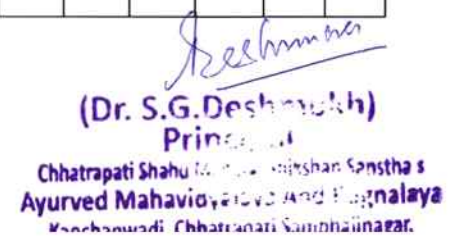 Deshmukh
(Dr. S.G.Deshmukh)
Principal
Chhatrapati Shahu Shikshan Sanstha s
Ayurved Mahavidyalaya And Rugnalaya
Kanchanwadi, Chhatrapati Sambhajinagar.